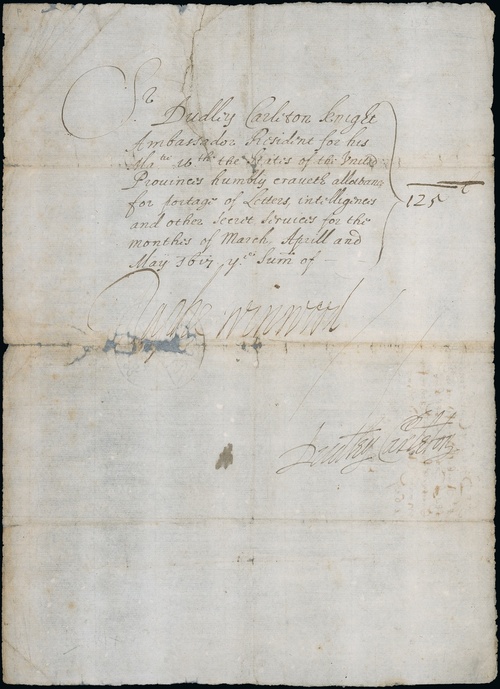 Sr Dudley Carleton knight
Ambassador Resident for his
Matie wth the States of the United
Provinces humbly craveth allowance
for portage of Letters, intelligences
and other secret services for the
monthes of March, Aprill and
May 1617, ye sum of –
125
Raphe Winwood
Dudley Carleton